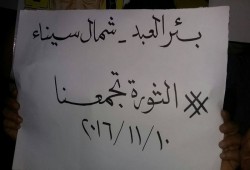 بئر العبد - شمال سيناء
# الثورة تجمعنا
٢٠١٦/١١/١٠